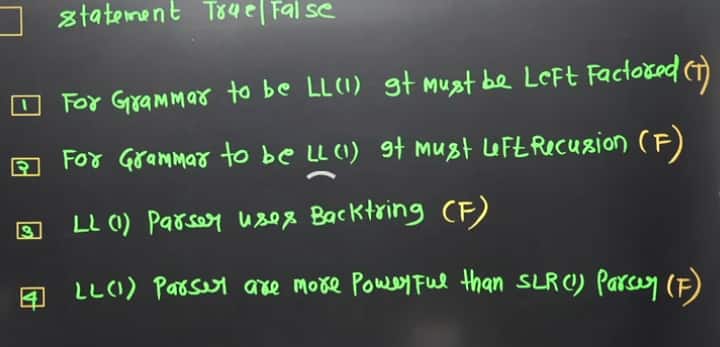 statement True|False
1 For Grammar to be LL(1) It must be Left Factored (T)
2 For Grammar to be LL(1) It must Left Recusion (F)
3 LL(1) Parser uses Backtring (F)
4 LL(1) Parser are more Powerful than SLR(1) Parser (F)